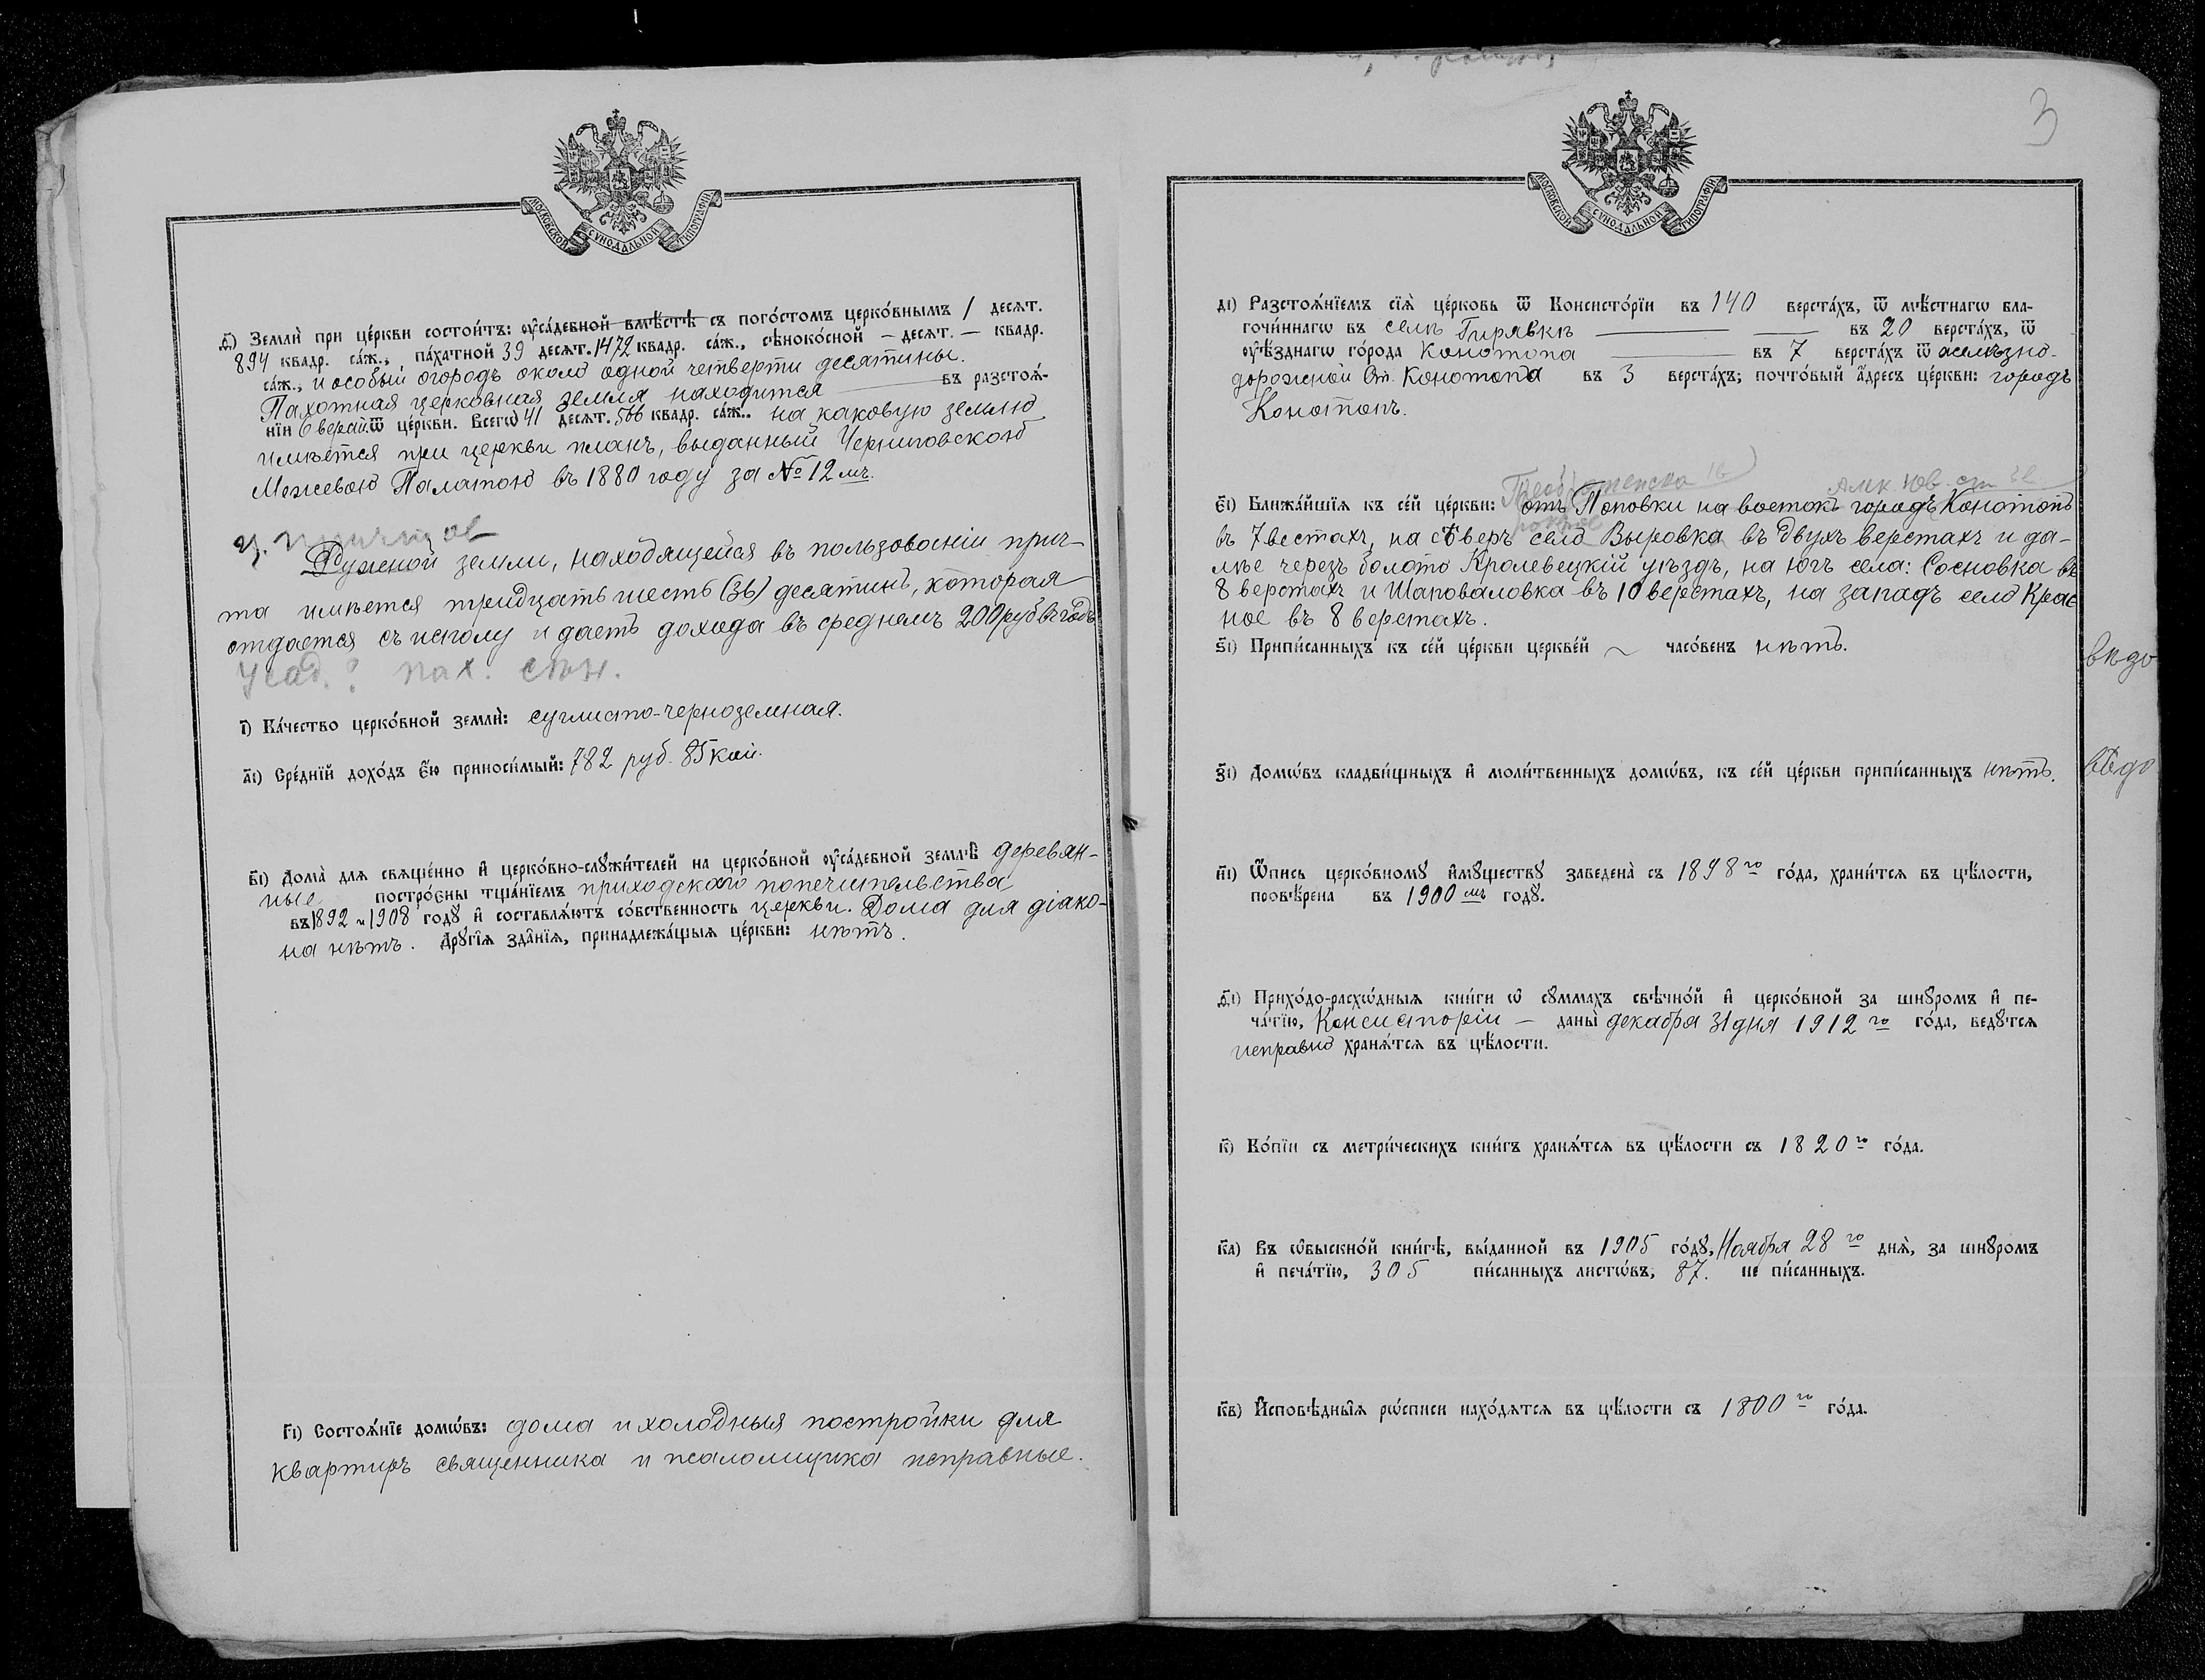 МОСКОВСКОЙ СУНОДАЛЬНОЙ ТИПОГРАФІИ
д҃) Землѝ при це́ркви состои́тъ: ᲂу҆са́дебной вмѣ́стѣ съ пого́стомъ церко́внымъ 1 десѧт.
894 квадр. са́ж., па́хатной 39 десѧт. 1472 квадр. са́ж., сѣноко́сной — десѧт. — квадр.
са́ж., и особый огородъ около одной четверти десятины.
Пахотная церковная земля находится въ разстоѧ́-
нїи 6 верст. ѿ це́ркви. Всегѡ̀ 41 десѧт. 566 квадр. са́ж. на каковую землю
имѣется при церкви планъ, выданный Черниговскою
Межевою Палатою въ 1880 году за № 12мъ.
Ружной земли, находящейся въ пользованіи прич-
та имѣется тридцать шесть (36) десятинъ, которая
отдается съ исполу и даетъ дохода въ среднемъ 200 руб въ годъ
Усад.? пах. сѣн.
і҃) Ка́чество церко́вной землѝ: суглисто-черноземная.
а҃і) Сре́днїй дохо́дъ є҆́ю приноси́мый: 782 руб. 85 коп.
в҃і) Дома̀ для свѧще́нно и҆ церко́вно-слꙋжи́телей на церко́вной ᲂу҆са́дебной землѣ̀ деревян-
ные постро́єны тща́нїемъ приходского попечительства
въ 1892 и 1908 годꙋ̀ и҆ составлѧ́ютъ со́бственность церкви. Дома для діако-
на нѣтъ. Дрꙋгі́ѧ зда́нїѧ, принадлежа́щыѧ це́ркви: нѣтъ.
г҃і) Состоѧ́нїе домѡ́въ: дома и холодныя постройки для
квартиръ священника и псаломщика исправные.
3
МОСКОВСКОЙ СУНОДАЛЬНОЙ ТИПОГРАФІИ
д҃і) Разстоѧ́нїемъ сїѧ̀ це́рковь ѿ Консисто́рїи въ 140 верста́хъ, ѿ мѣ́стнагѡ бла-
гочи́ннагѡ въ селѣ Гирявкѣ въ 20 верста́хъ, ѿ
ᲂу҆ѣ́зднагѡ го́рода Конотопа въ 7 верста́хъ ѿ желѣзно-
дорожной ст. Конотопа въ 3 верста́хъ; почто́вый а҆́дресъ це́ркви: городъ
Конотопъ.
є҃і) Ближа́йшїѧ къ се́й це́ркви: отъ Поповки на востокъ городъ Конотопъ
въ 7 вестахъ, на сѣверъ село Выровка въ двухъ верстахъ и да-
лѣе черезъ болото Кролевецкій уѣздъ, на югъ села: Сосновка въ
8 верстахъ и Шаповаловка въ 10 верстахъ, на западъ село Крас
ное въ 8 верстахъ.
ѕ҃і) Припи́санныхъ къ се́й це́ркви церкве́й ~ часо́венъ нѣтъ.
вѣдо
з҃і) Домѡ́въ кладби́щныхъ и҆ моли́твенныхъ домѡ́въ, къ се́й це́ркви припи́санныхъ нѣтъ.
вѣдо
и҃і) Ѻ҆́пись церко́вномꙋ и҆мꙋ́ществꙋ заведена̀ съ 1898го го́да, храни́тсѧ въ цѣ́лости,
провѣ́рена въ 1900мъ годꙋ̀.
д҃і) Прихо́до-расхѡ́дныѧ кни́ги ѡ҆ сꙋ́ммахъ свѣчно́й и҆ церко́вной за шнꙋро́мъ и҆ пе-
ча́тїю, Консисторіи — даны̀ декабря 31 дня 1912го го́да, ведꙋ́тсѧ
исправно хранѧ́тсѧ въ цѣ́лости.
к҃) Ко́пїи съ метри́ческихъ кни́гъ хранѧ́тсѧ въ цѣ́лости съ 1820го го́да.
к҃а) Въ ѡ҆быскно́й кни́гѣ, вы́данной въ 1905 го́дꙋ, Ноября 28го днѧ̀, за шнꙋро́мъ
и҆ печа́тїю, 305 пи́санныхъ листѡ́въ, 87. не пи́санныхъ.
к҃в) И҆сповѣ́дныѧ рѡ́списи нахо́дѧтсѧ въ цѣ́лости съ 1800го го́да.